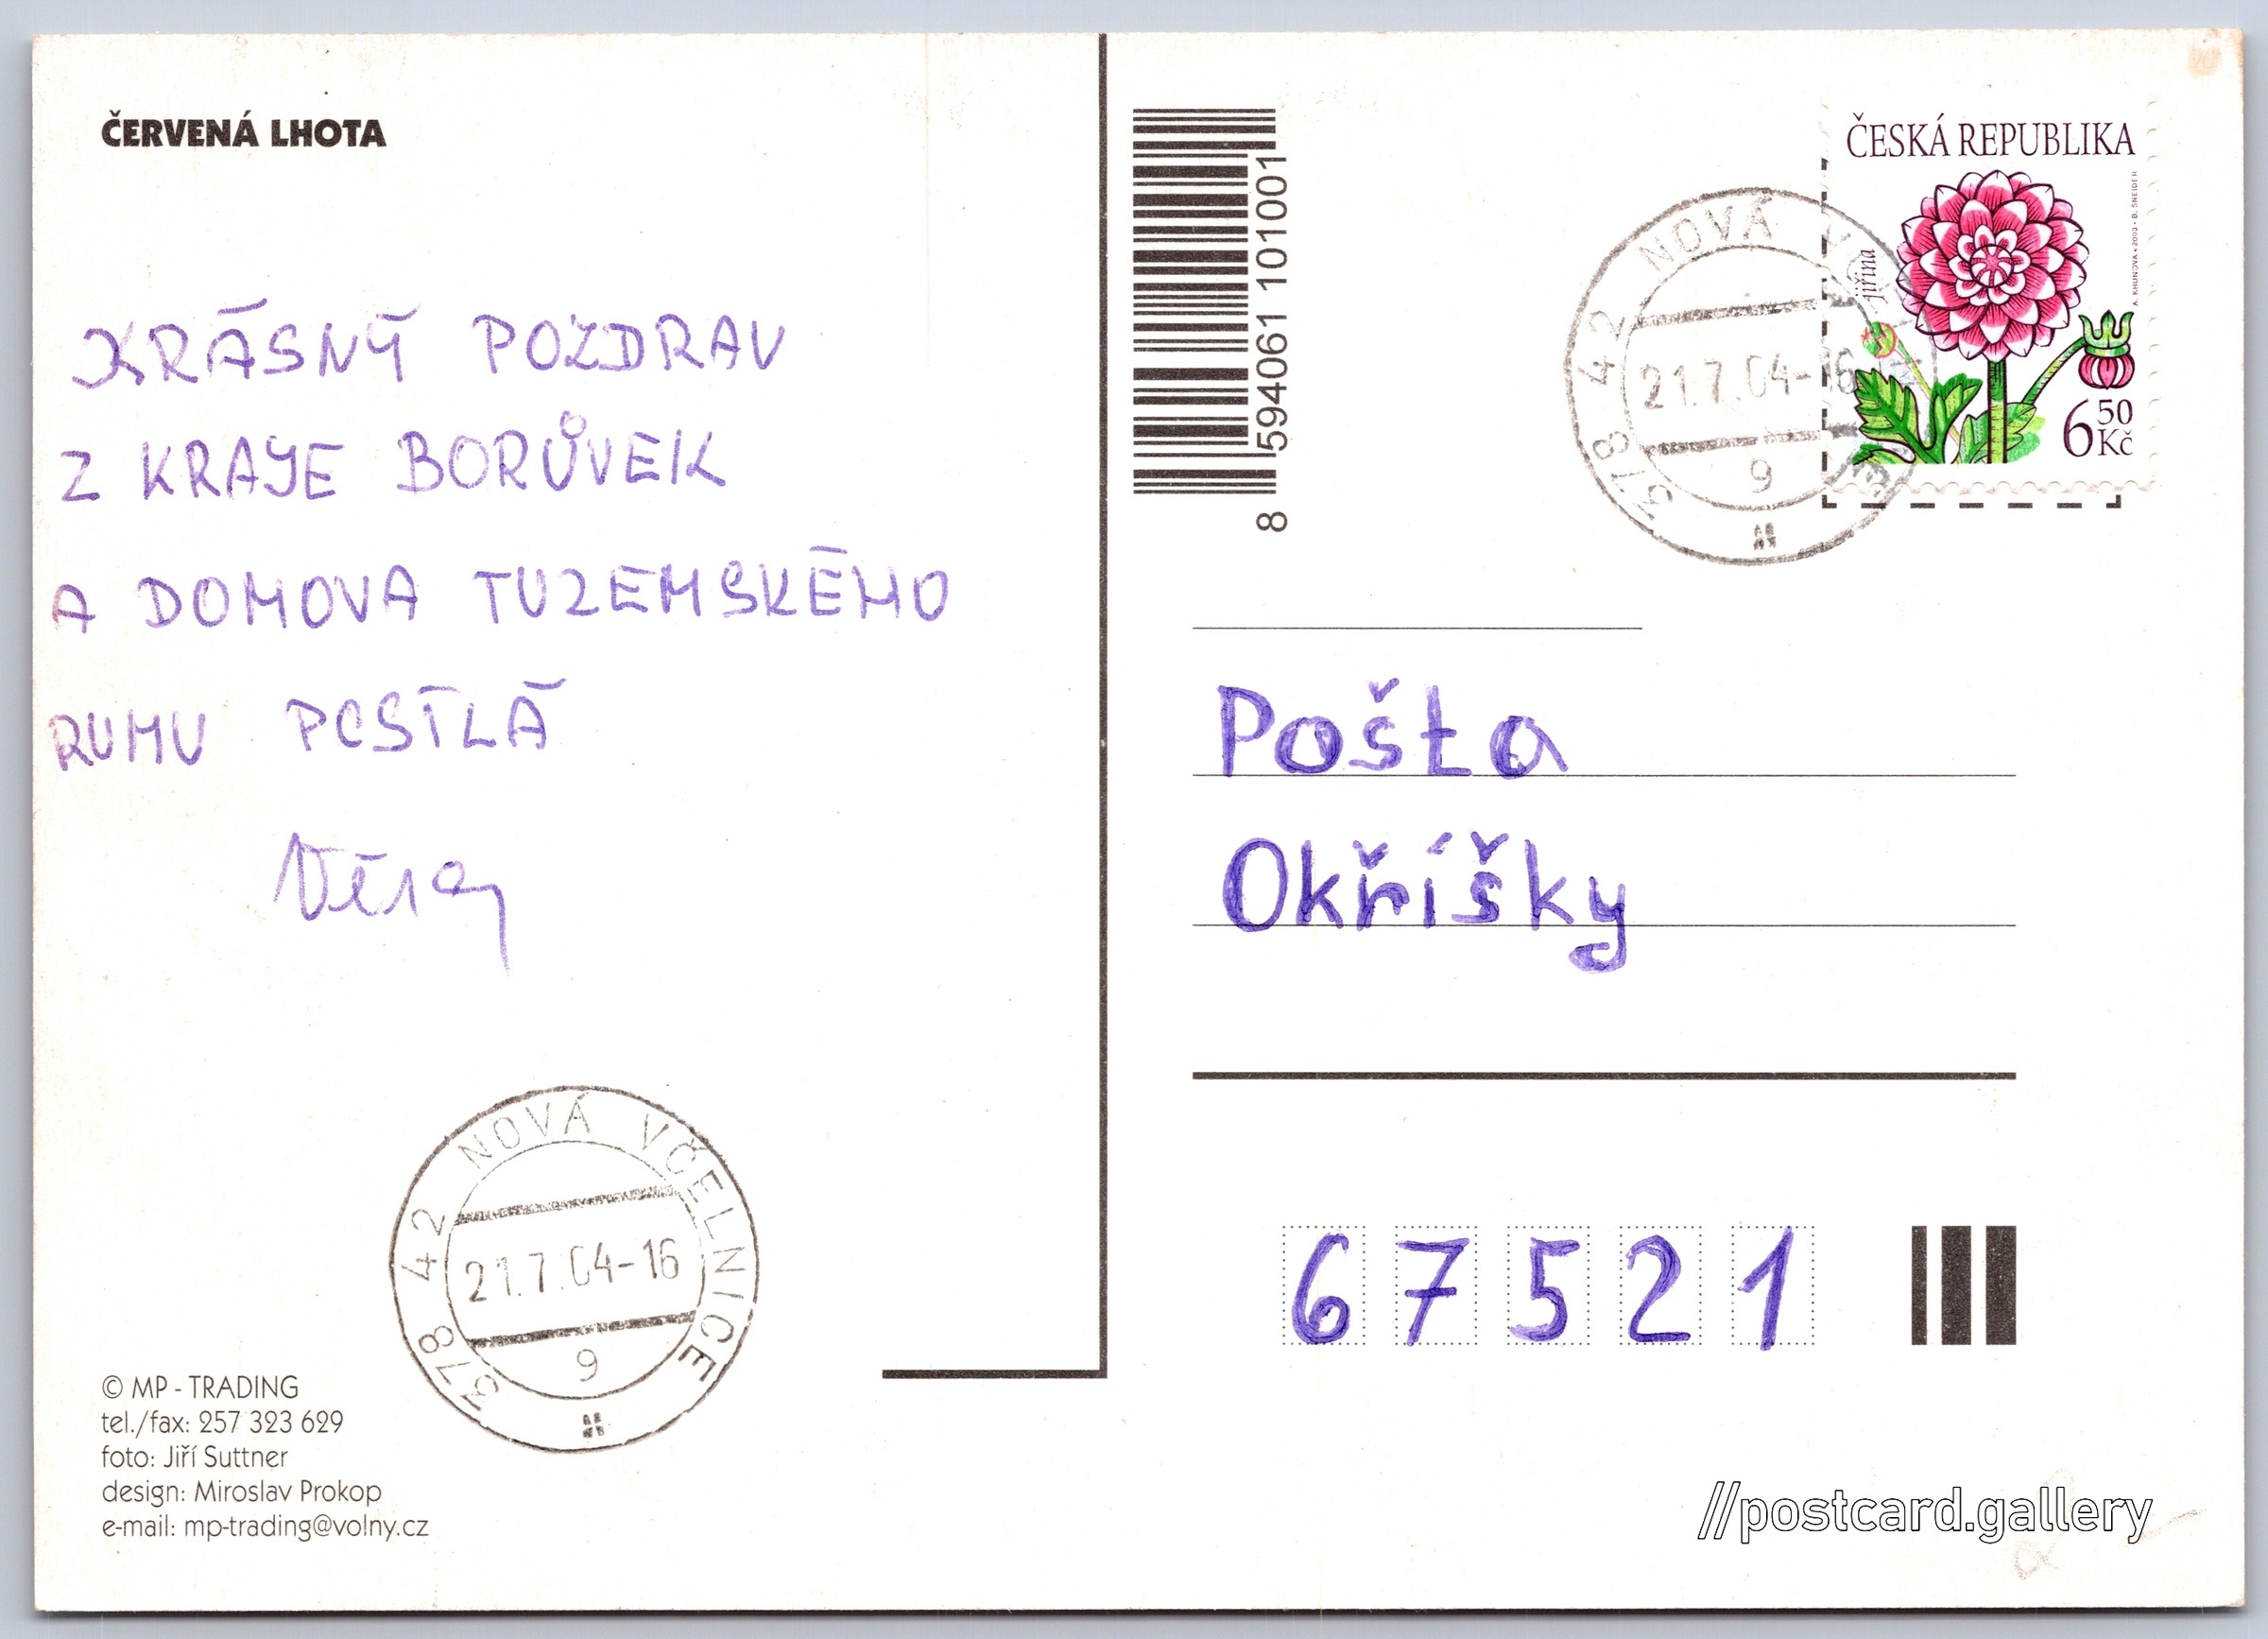 ČERVENÁ LHOTA
KRÁSNÝ POZDRAV
Z KRAJE BORŮVEK
A DOMOVA TUZEMSKÉHO
RUMU POSÍLÁ
Věra
378 42 NOVÁ VČELNICE
21.7.04-16
9
© MP - TRADING
tel./fax: 257 323 629
foto: Jiří Suttner
design: Miroslav Prokop
e-mail: mp-trading@volny.cz
8 594061 101001
ČESKÁ REPUBLIKA
jiřina
A. KHUNOVÁ • 2003 • B. ŠNEIDER
6 50 Kč
378 42 NOVÁ V
21.7.04-16
9
Pošta
Okříšky
67521
//postcard.gallery